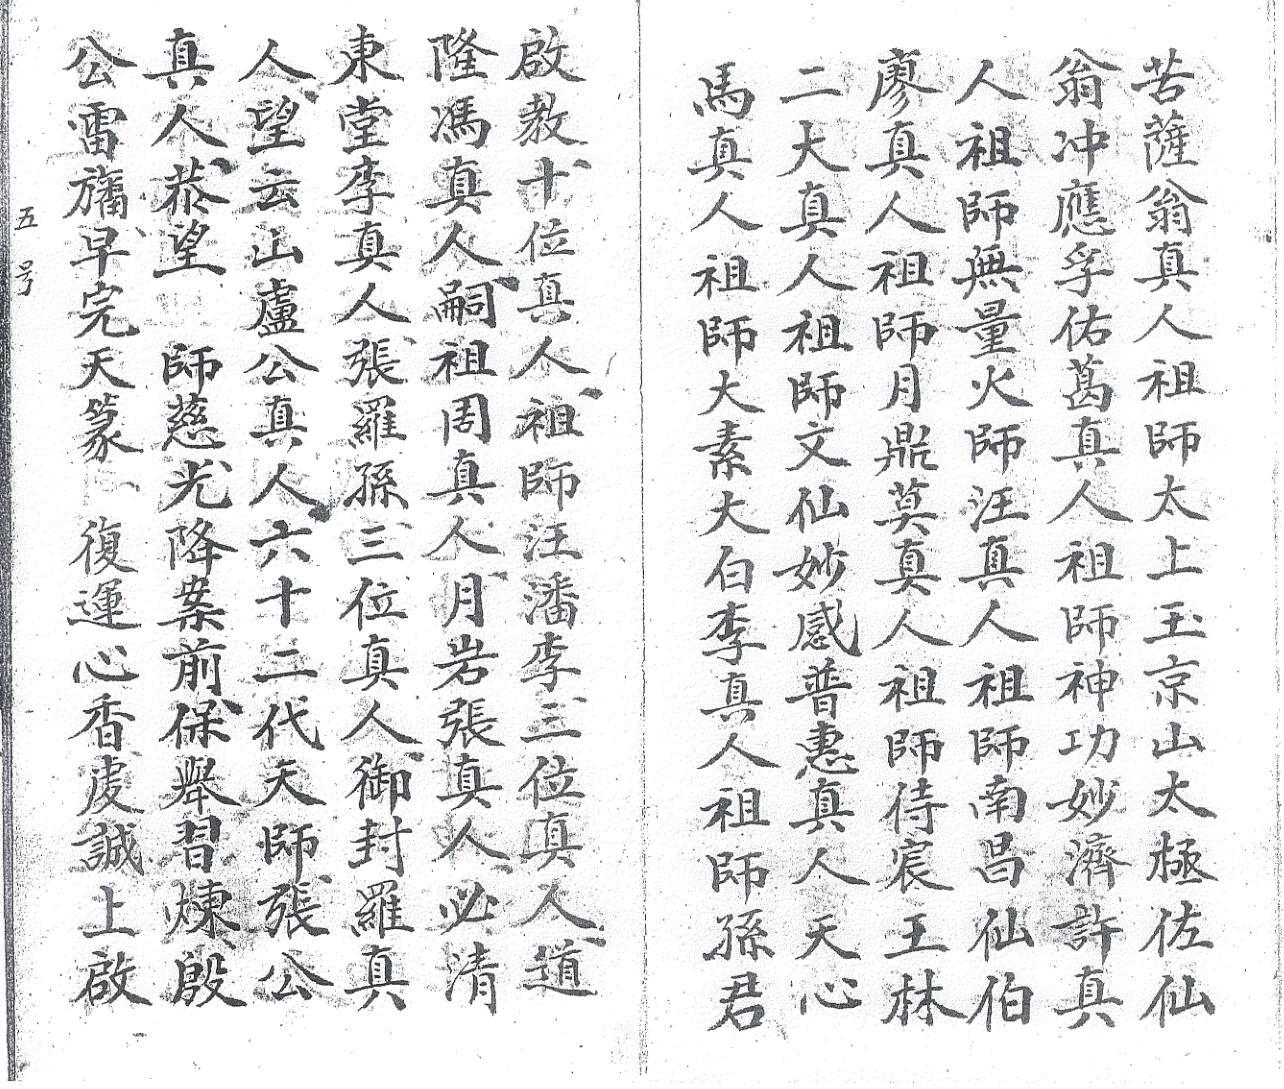 苦薩翁真人祖師太上玉京山太極佐仙
翁冲應孚佑葛真人祖師神功妙濟許真
人祖師無量火師汪真人祖師南昌仙伯
廖真人祖師月鼎莫真人祖師侍宸王林
二大真人祖師文仙妙感普惠真人天心
馬真人祖師大素大白李真人祖師孫君
啟教十位真人祖師汪潘李三位真人道
隆馮真人嗣祖周真人月岩張真人必清
東堂李真人張羅孫三位真人御封羅真
人望云山盧公真人六十二代天師張公
真人恭望 師慈光降案前保舉習煉殷
公雷旛早完天篆 復運心香虔誠上啟
五号